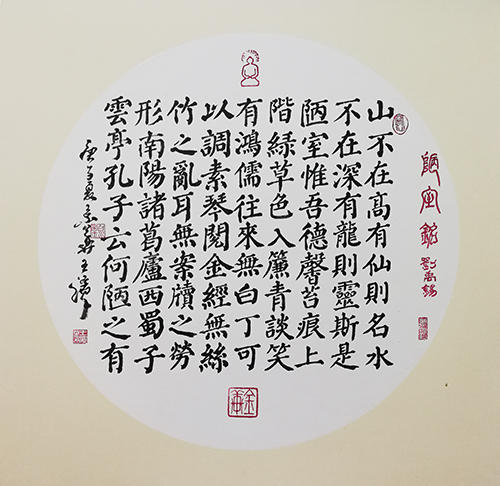 陋室銘 劉禹錫
山不在高有仙則名水
不在深有龍則靈斯是
陋室惟吾德馨苔痕上
階綠草色入簾青談笑
有鴻儒往來無白丁可
以調素琴閱金經無絲
竹之亂耳無案牘之勞
形南陽諸葛廬西蜀子
雲亭孔子云何陋之有